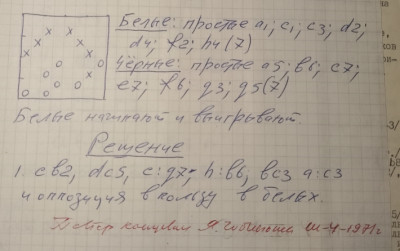 Белые: простые a1; c1; c3; d2;
d4; f2; h4 (7)
Чёрные: простые a5; b6; c7;
e7; f6; g3; g5 (7)
Белые начинают и выигрывают.
Решение
1. cb2, dc5, c:g7; h:b6, bc3 a:c3
и оппозиция в пользу белых.
Повтор концовки Я.
III-Ч-1971г